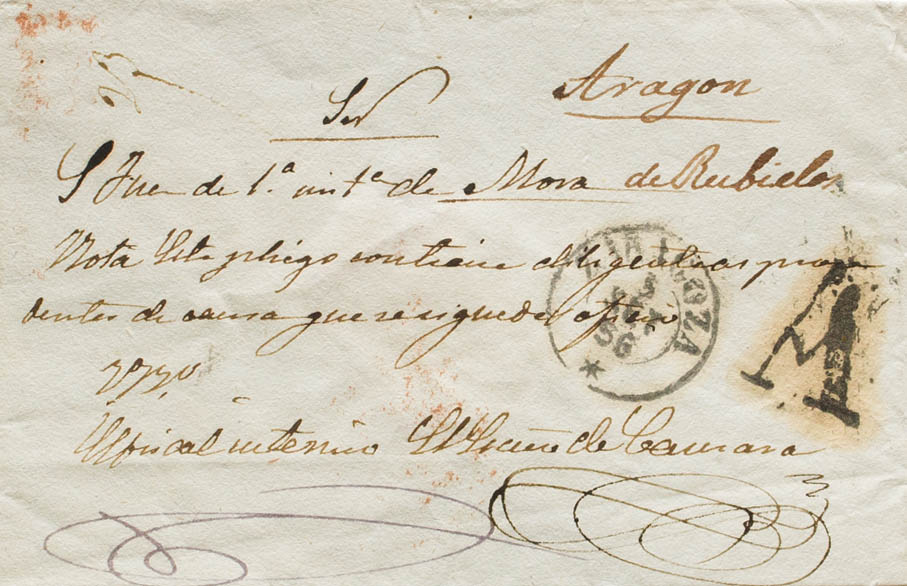 Aragon
Sor
S Juez de 1.ª inst.ª de Mora de Rubielos
Nota Este pliego contiene diligencias proce
dentes de causa que se sigue de oficio
El fiscal interino El Sécno de Camara
ZARAGOZA
M